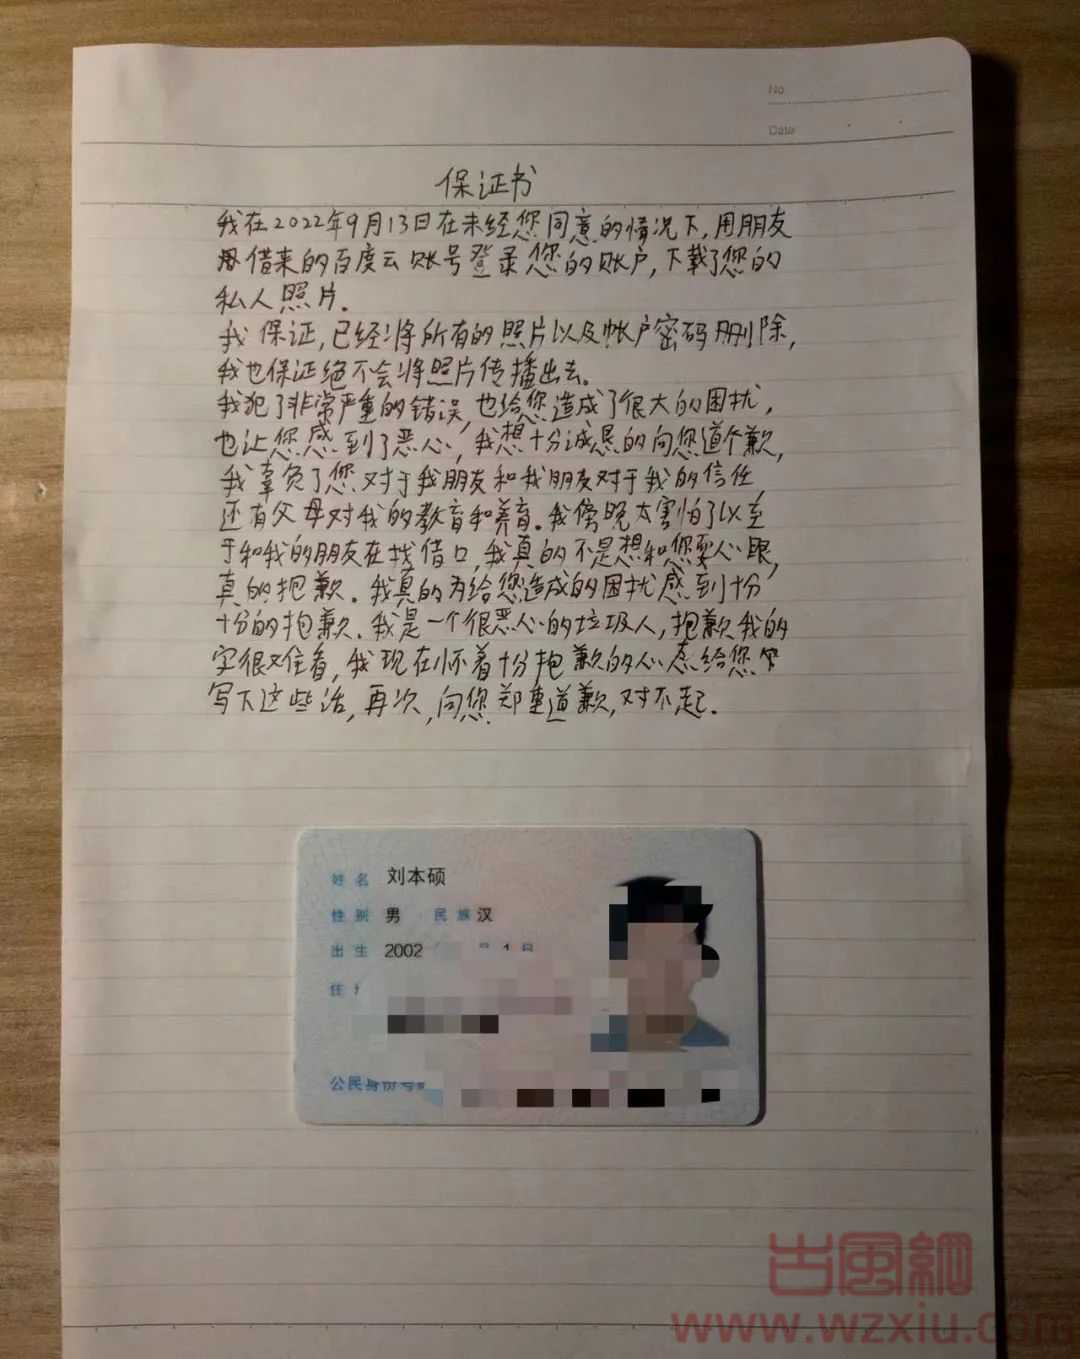 No
Date
保证书
我在2022年9月13日在未经您同意的情况下,用朋友
借来的百度云账号登录您的账户,下载了您的
私人照片.
我保证,已经将所有的照片以及帐户密码删除,
我也保证绝不会将照片传播出去。
我犯了非常严重的错误,也给您造成了很大的困扰,
也让您感到了恶心,我想十分诚恳的向您道个歉,
我辜负了您对于我朋友和我朋友对于我的信任
还有父母对我的教育和养育.我傍晚太害怕了以至
于和我的朋友在找借口,我真的不是想和您耍心眼,
真的抱歉.我真的为给您造成的困扰感到十分
十分的抱歉.我是一个很恶心的垃圾人,抱歉我的
字很难看,我现在怀着十分抱歉的心态给您
写下这些话,再次,向您郑重道歉,对不起.
姓名 刘本硕
性别 男 民族 汉
出生 2002
公民身份号
古風網
www.wzxiu.com